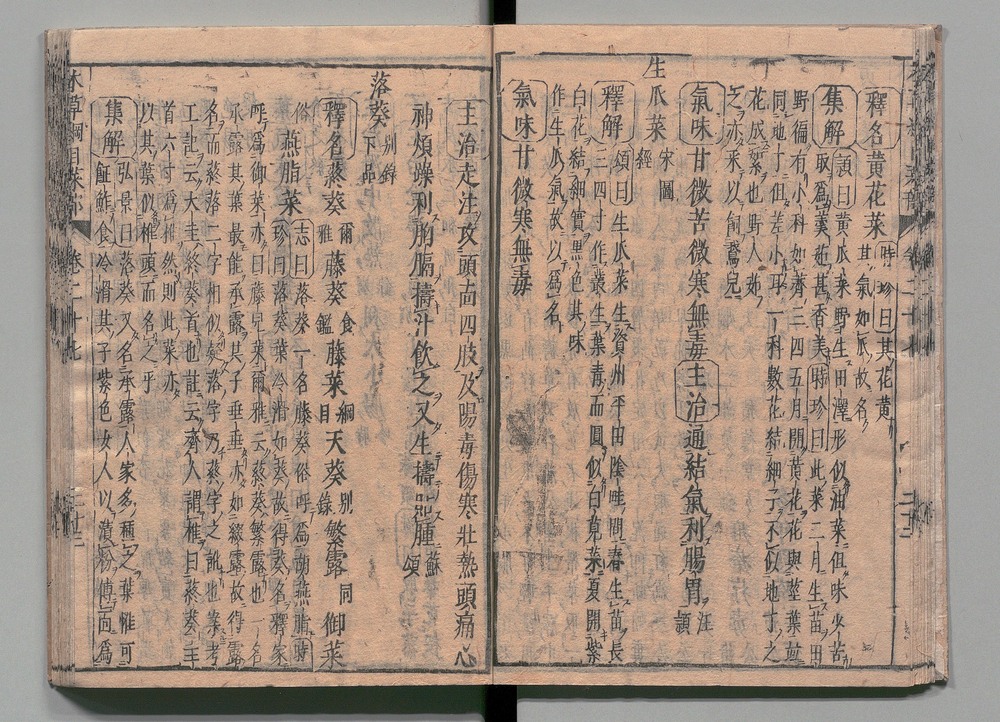 釋名黃花菜 時珍曰其花黃
其氣如瓜故名
集解 頴曰黃瓜菜野生田澤形似油菜但味少苦
取爲羹茹甚香美 時珍曰此菜二月生苗田
野徧有小科如薺三四五月開黃花花與莖葉竝
同地丁但差小耳一科數花結細子不似地丁之
花成絮也野人茹
之亦采以飼鵞兒
氣味甘微苦微寒無毒主治通結氣利腸胃 汪頴
生瓜菜 宋圖經
釋解 頌曰生瓜菜生資州平田陰畦閒春生苗長
三四寸作叢生葉青而圓似白莧菜夏開紫
白花結細實黑色其味
作生瓜氣故以爲名
氣味甘微寒無毒
主治走注攻頭面四肢及陽毒傷寒壯熱頭痛心
神煩躁利胷膈擣汁飮之又生擣貼腫 蘇頌
落葵 別錄下品
釋名蔠葵 爾雅 藤葵 食鑑 藤菜 綱目 天葵 別錄 繁露 同 御菜
俗 燕脂菜 志曰落葵一名藤葵俗呼爲胡燕脂 時
珍曰落葵葉冷滑如葵故得葵名釋家
呼爲御菜亦曰藤兒菜爾雅云蔠葵繁露也一名
承露其葉最能承露其子垂垂亦如綴露故得露
名而蔠落二字相似疑落字乃蔠字之訛也案考
工記云大圭終葵首也註云齊人謂椎曰終葵圭
首六寸爲椎然則此菜亦
以其葉似椎頭而名之乎
集解 弘景曰落葵又名承露人家多種之葉惟可
飪鮓食冷滑其子紫色女人以漬粉傅面爲
本草綱目菜部 卷二十七